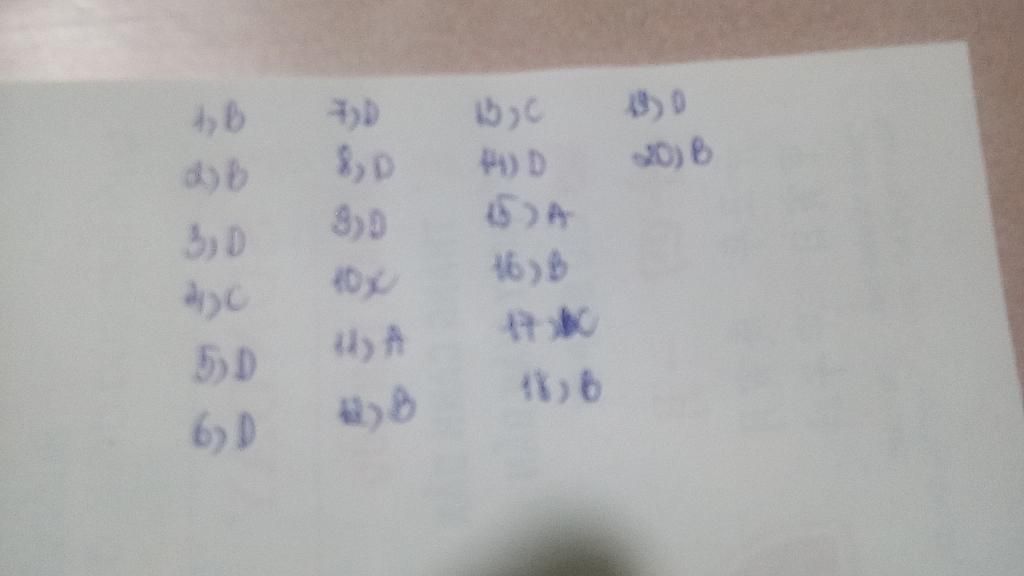 1) B
2) B
3) D
4) C
5) D
6) D
7) D
8) D
9) D
10) C
11) A
12) B
13) C
14) D
15) A
16) B
17) C
18) B
19) D
20) B